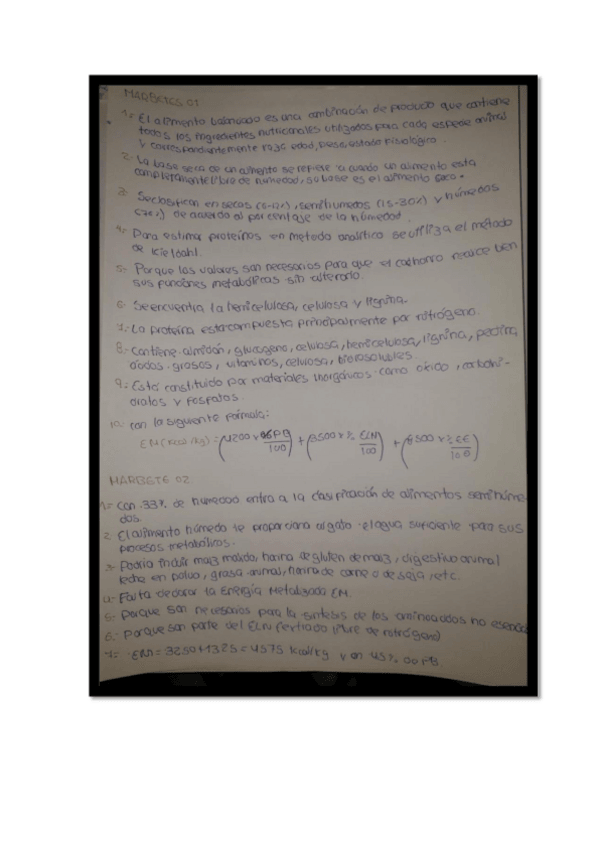 MARBETES 01
1.- El alimento balanceado es una combinación de producto que contiene
todos los ingredientes nutricionales utilizados para cada especie animal
y correspondientemente raza edad, peso, estado fisiológico.
2.- La base seca de un alimento se refiere a cuando un alimento esta
completamente libre de humedad, su base es el alimento seco.
3.- Se clasifican en secos, semihumedos (15-30%) y húmedos
de acuerdo al porcentaje de la húmedad.
4.- Para estimar proteínas en metodo analítico se utiliza el método
de Kjeldahl.
5.- Porque los valores son necesarios para que el cachorro realice bien
sus funciones metabólicas sin alterarlo.
6.- Se encuentra la hemicelulosa, celulosa y lignina.
7.- La proteína esta compuesta principalmente por nitrógeno.
8.- Contiene almidón, glucogeno, celulosa, hemicelulosa, lignina, pectina,
ácidos grasos, vitaminas, celulosa, biorosolubles.
9.- Está constituido por materiales inorgánicos como oxido, carbohi-
dratos y fosfatos.
10.- con la siguiente formula:
EM (Kcal/kg) = (3500 x % ELN / 100) + (8500 x % EE / 100)
MARBETE 02
1.- Con 33% de humedad entra a la clasificación de alimentos semihúme-
dos.
2.- El alimento húmedo le proporciona al gato el agua suficiente para sus
procesos metabólicos.
3.- Podría incluir maíz molido, harina de gluten de maiz, digestivo animal
leche en polvo, grasa animal, harina de carne o de soja, etc.
4.- Falta declarar la Energía Metabolizada EM.
5.- Porque son necesarios para la sintesis de los aminoacidos no esenciales
6.- porque son parte del ELN (extracto libre de nitrógeno)
7.- EM = 3250+1325 = 4575 kcal/kg y en 45% de PB